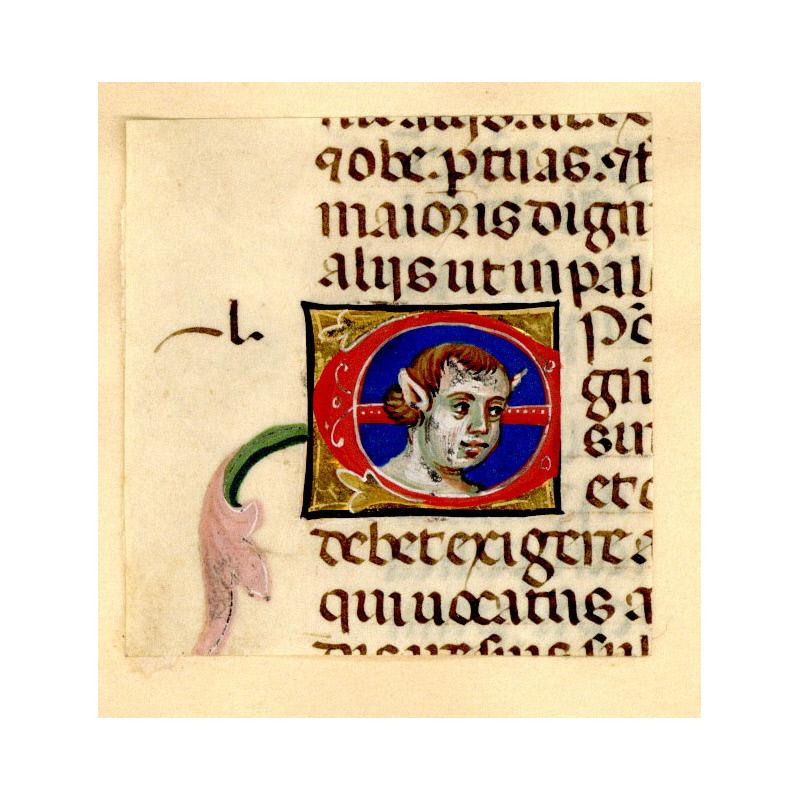 qobe. ptuas. qt
maioris digni
alijs ut in pal
l.
E
po
gn
sin
et c
debet exigere a
qui uocatus a